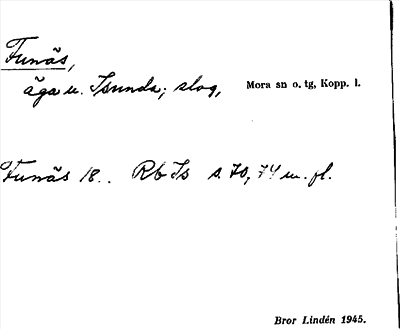 Funäs,
äga u. Isunda; slog, Mora sn o. tg, Kopp. l.
Funäs 18.. Rb Is s. 70, 74 m. fl.
Bror Lindén 1945.